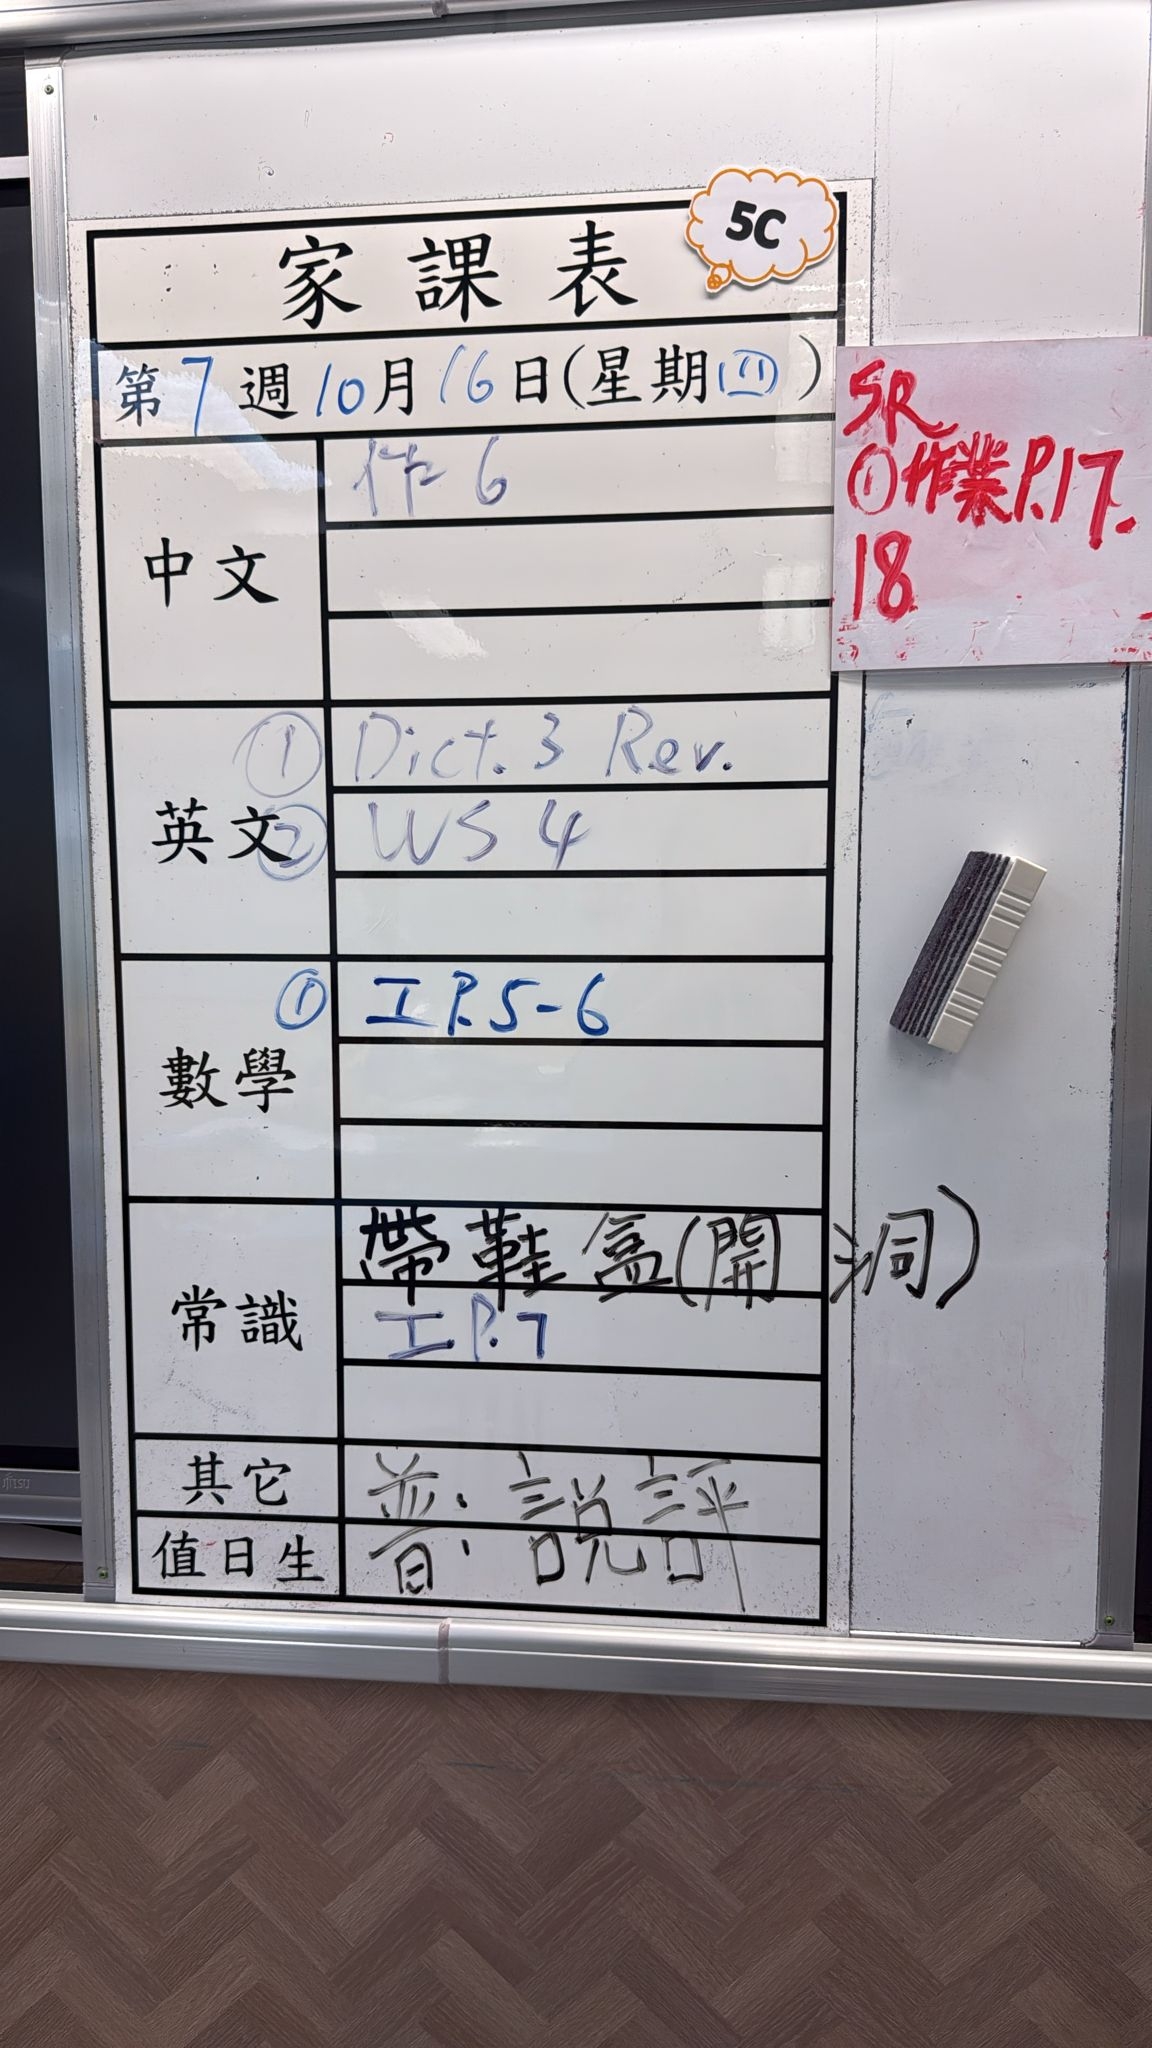 5C
家課表
第7週10月16日(星期四)
5R
①作業P.17.
18
中文
作6
英文
① Dict. 3 Rev.
② WS 4
數學
① 工 P.5-6
常識
帶鞋盒(開洞)
工 P.7
其它
普: 説評
值日生